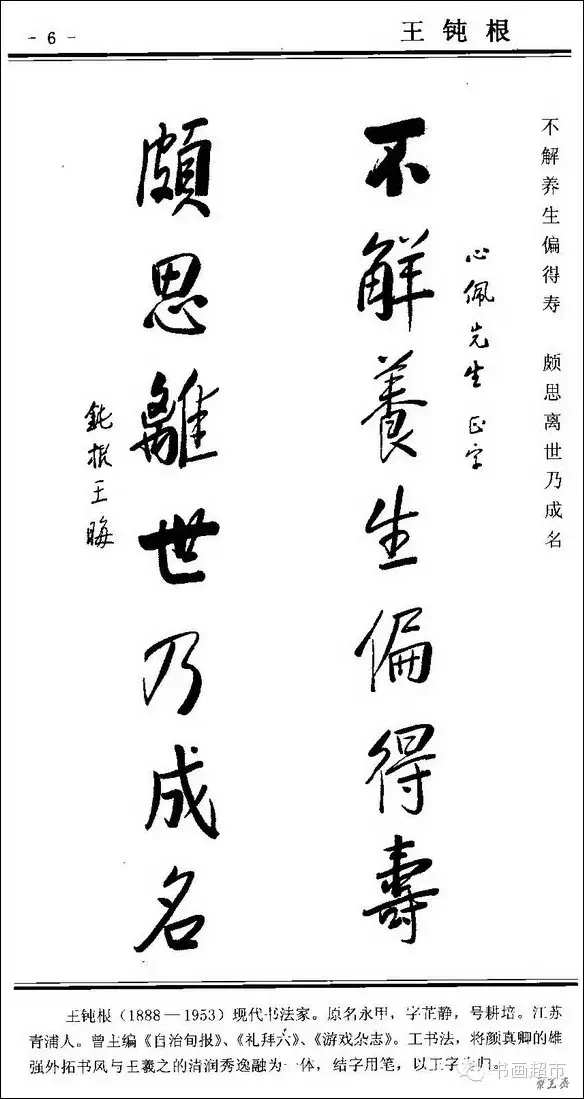 - 6 -
王钝根
不解养生偏得寿 颇思离世乃成名
心佩先生正字
不解養生偏得壽
頗思離世乃成名
鈍根王晦
王钝根（1888—1953）现代书法家。原名永甲，字芷静，号耕培。江苏
青浦人。曾主编《自治旬报》、《礼拜六》、《游戏杂志》。工书法，将颜真卿的雄
强外拓书风与王羲之的清润秀逸融为一体，结字用笔，以工字为归。
书画超市